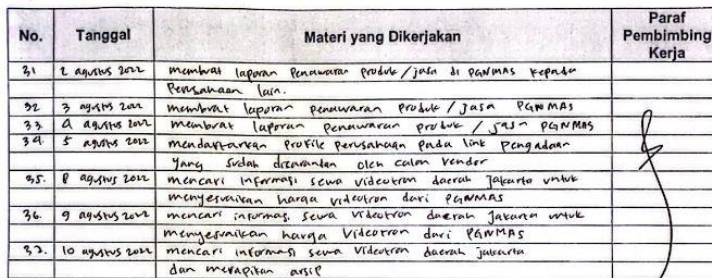 No. Tanggal Materi yang Dikerjakan Paraf Pembimbing Kerja
31 2 agustus 2022 membuat laporan Penawaran produk / jasa di PGNMAS kepada
Perusahaan lain.
32 3 agustus 2022 membuat laporan penawaran produk / jasa PGNMAS
33 4 agustus 2022 membuat laporan penawaran produk / jasa PGNMAS
34. 5 agustus 2022 mendaftarkan profile perusahaan pada link pengadaan
yang sudah dicarankan oleh calon vendor
35. 8 agustus 2022 mencari informasi sewa videotron daerah Jakarta untuk
menyesuaikan harga videotron dari PGNMAS
36. 9 agustus 2022 mencari informasi sewa videotron daerah Jakarta untuk
menyesuaikan harga videotron dari PGNMAS
37. 10 agustus 2022 mencari informasi sewa videotron daerah jakarta
dan merapikan arsip